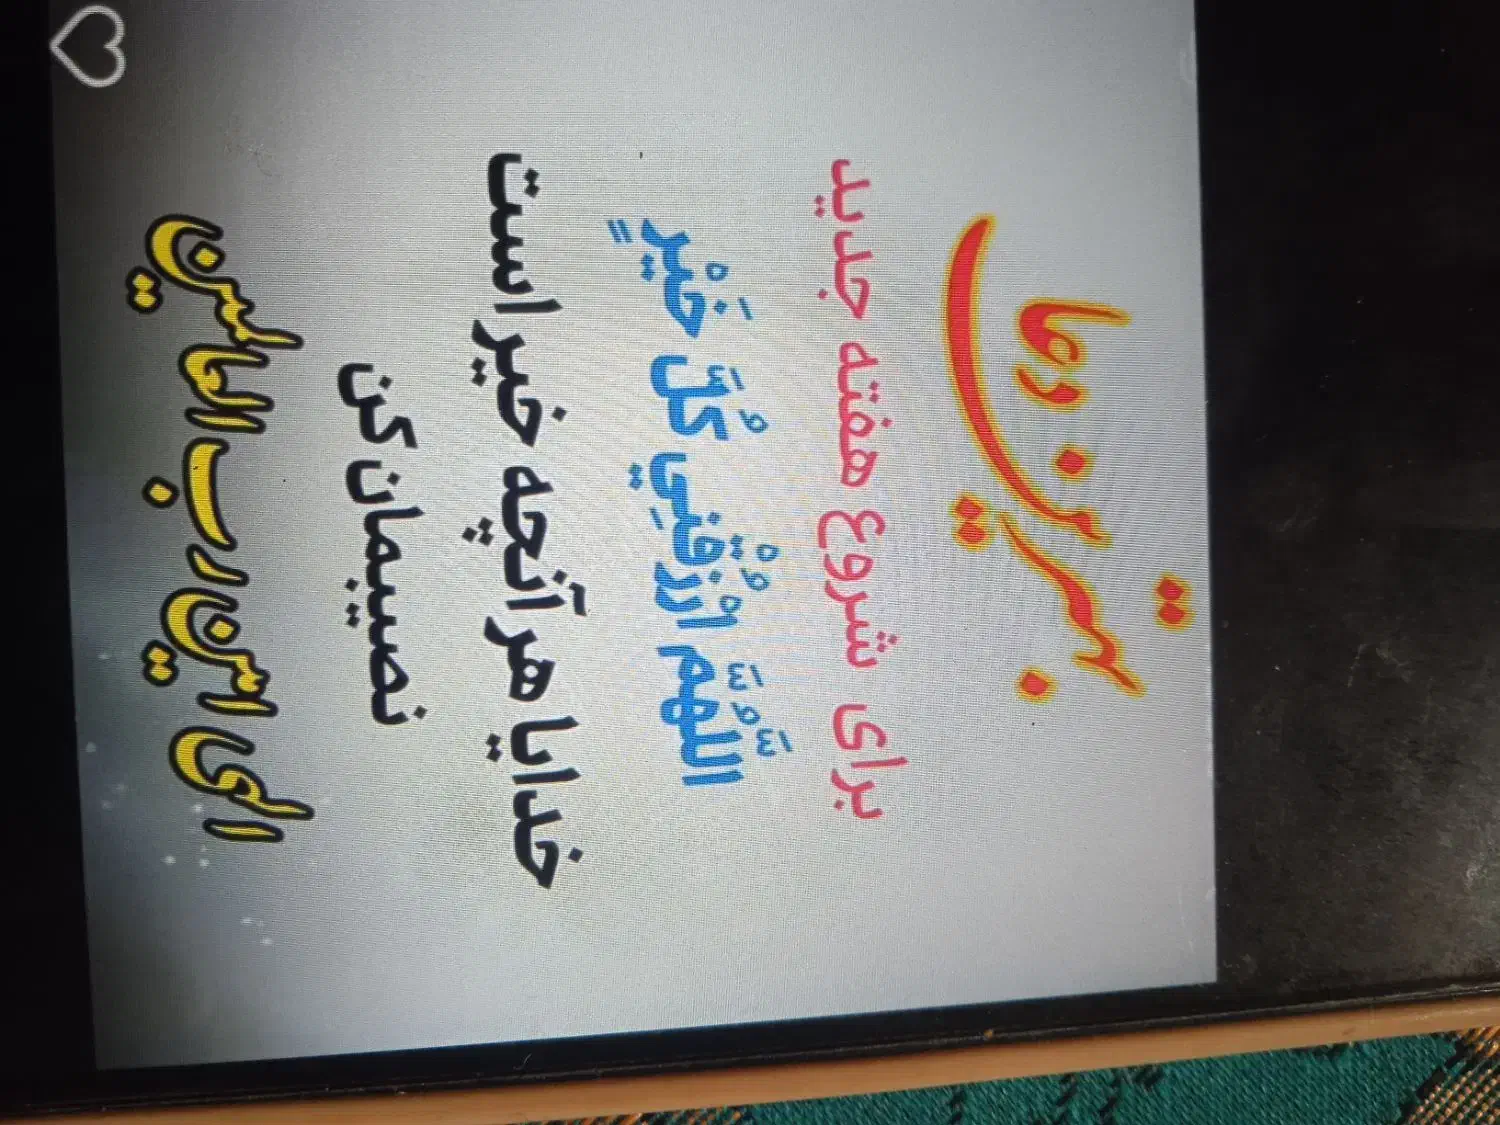 بهترین دعا
برای شروع هفته جدید
اللَّهُمَّ ارْزُقْنِي كُلَّ خَيْرٍ
خدایا هر آنچه خیر است
نصیبمان کن
الهی امین رب العالمین